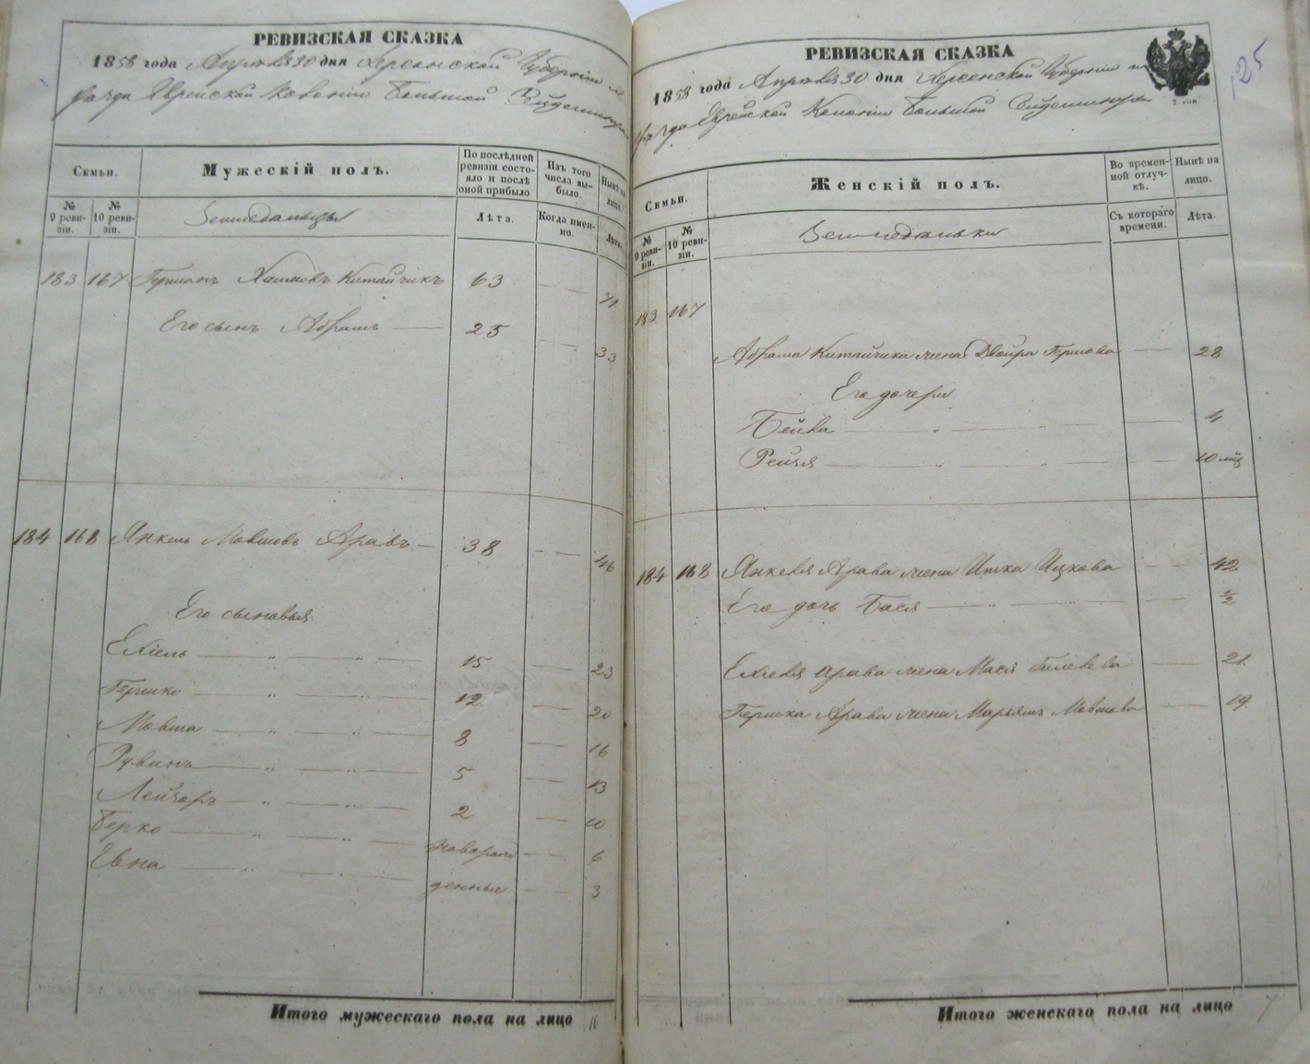 РЕВИЗСКАЯ СКАЗКА
1858 года Апреля 30 дня Херсонской Губернии
уезда Еврейской Колонии Большой Сейдеминухи
Семьи.
Мужескій полъ.
По последней ревизіи состояло и послѣ оной прибыло
Изъ того числа выбыло.
Нынѣ на лицо.
№ 9 ревизіи.
№ 10 ревизіи.
Земледельцы
Лѣта.
Когда именно.
Лѣта.
183 167 Гершонъ Хаимовъ Китайчикъ 63 71
Его сынъ Абрамъ 25 33
184 168 Янкель Мовшовъ Аравъ 38 46
Его сыновья
Ехіель 15 23
Гершко 12 20
Мовша 8 16
Рувинъ 5 13
Лейзеръ 2 10
Берко новорож 6
Евна денные 3
Итого мужескаго пола на лицо 10
РЕВИЗСКАЯ СКАЗКА
1858 года Апреля 30 дня Херсонской Губерніи
уезда Еврейской Колоніи Большой Сейдеминухи
2 коп.
125
Семьи.
Женскій полъ.
Во временной отлучкѣ.
Нынѣ на лицо.
№ 9 ревизіи.
№ 10 ревизіи.
Земледельки
Съ котораго времени.
Лѣта.
183 167
Абрама Китайчика жена Двойра Гершова 28
Его дочери
Бейла 4
Рейзя 10 мѣс
184 168 Янкеля Арава жена Итка Ицкова 42
Его дочь Бася ½
Ехіеля Арава жена Мася 21
Гершка Арава жена Марьямъ Мовшова 19
Итого женскаго пола на лицо 7